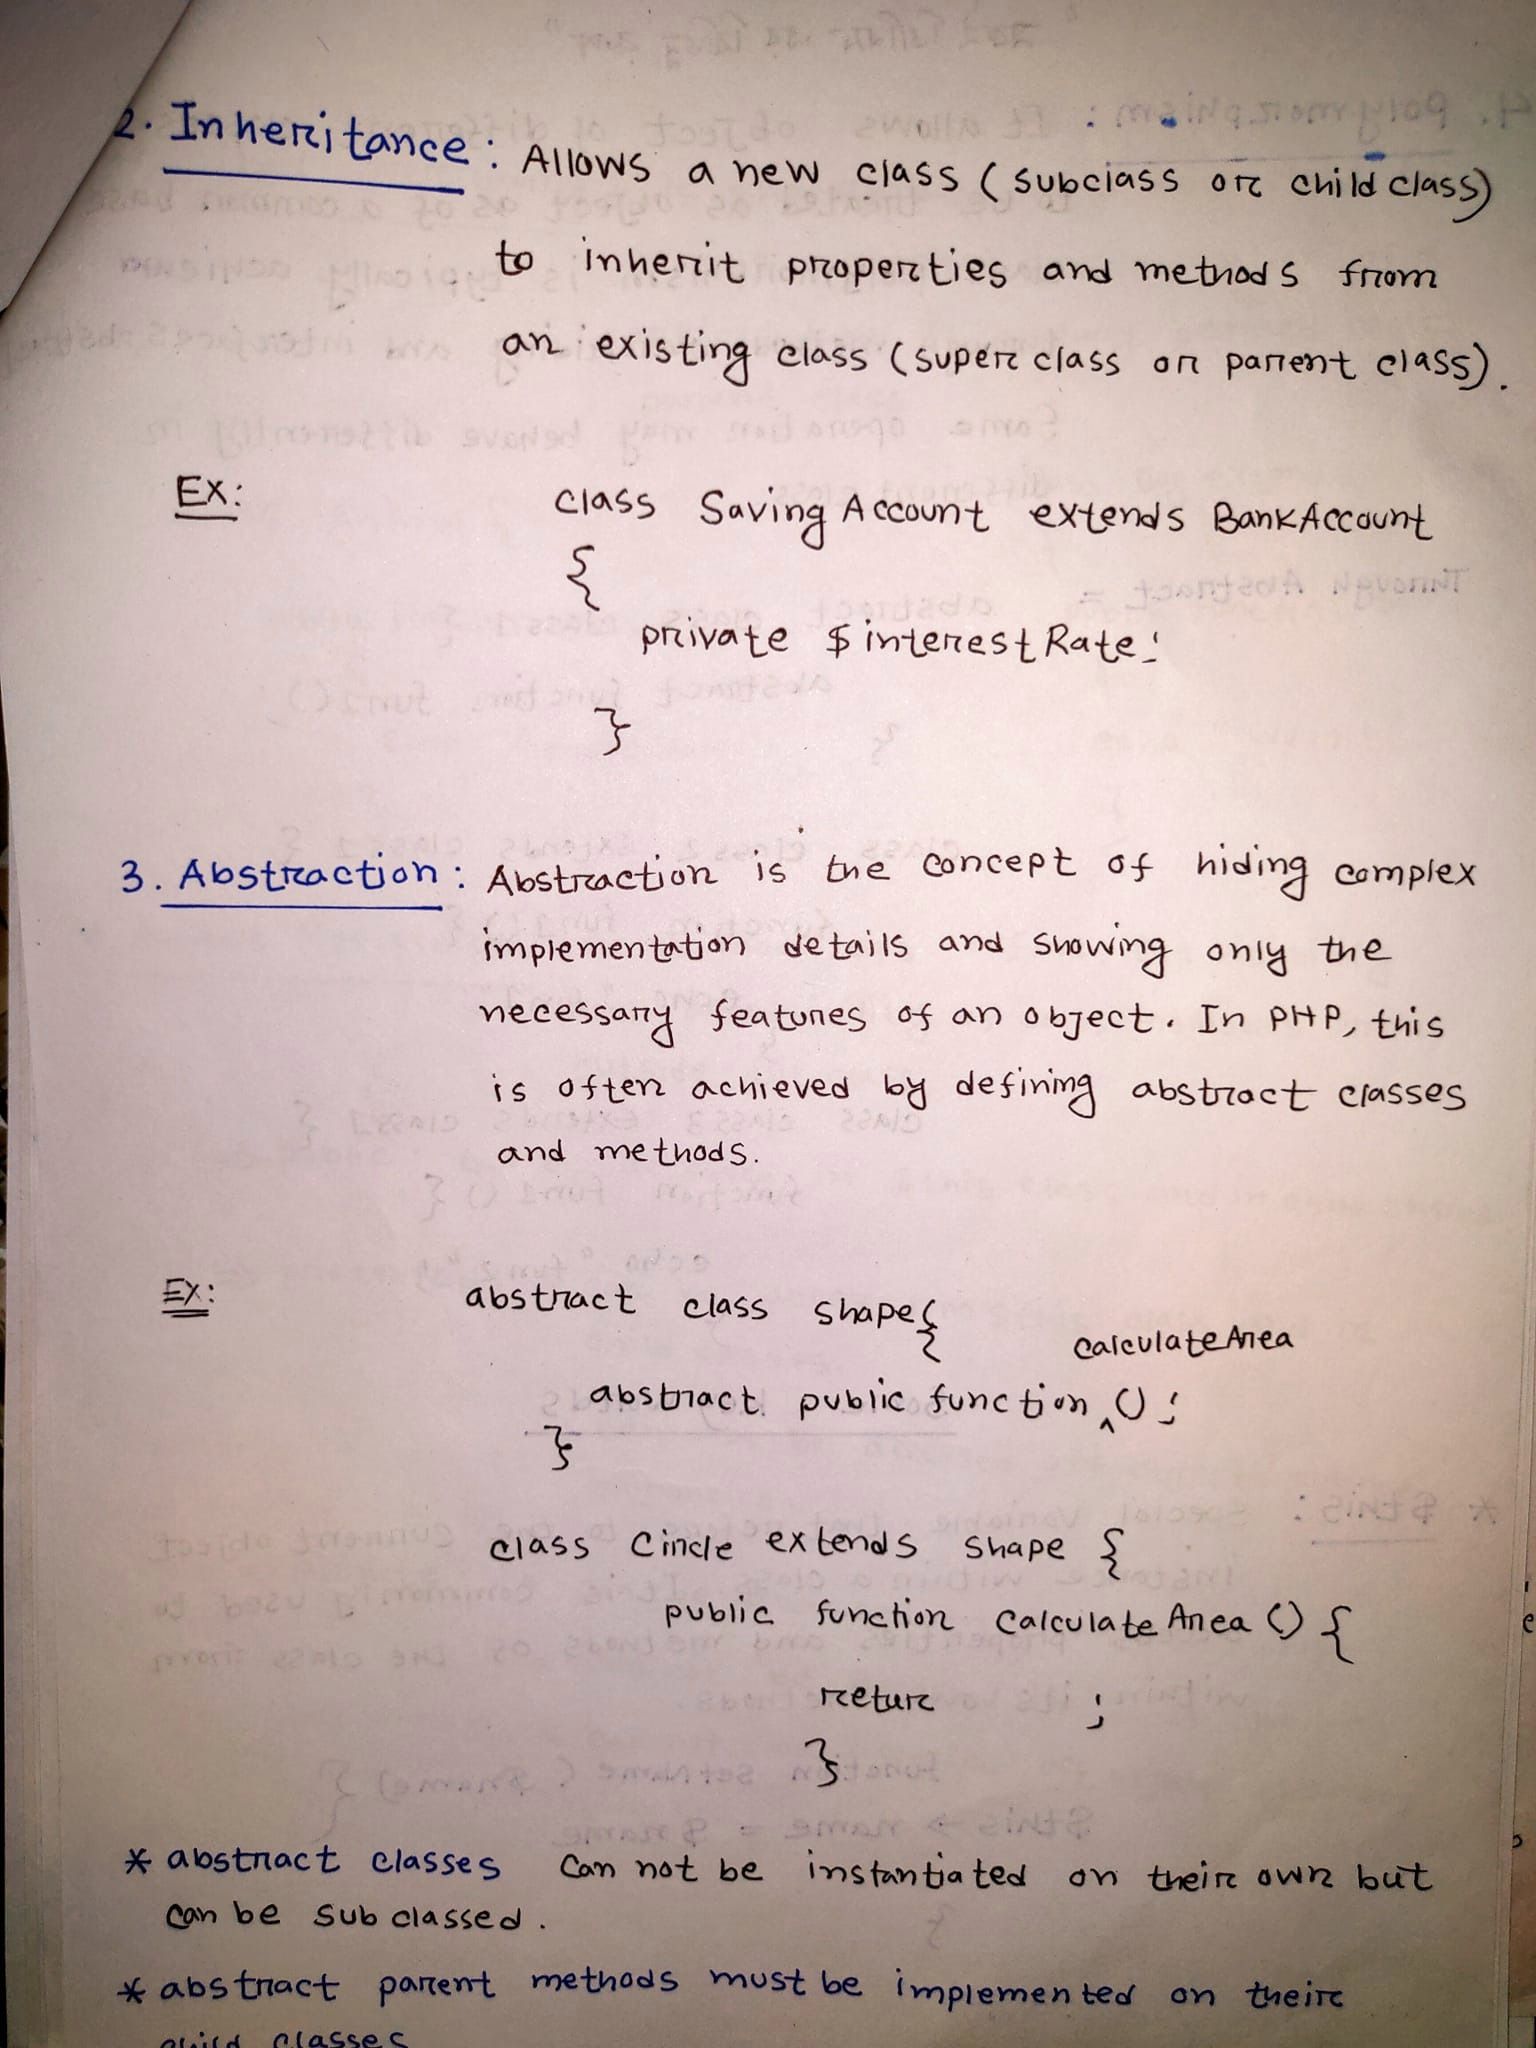 2. Inheritance: Allows a new class (subclass or child class)
to inherit properties and methods from
an existing class (super class or parent class).
EX:
class Saving Account extends BankAccount
{
private $interestRate;
}
3. Abstraction: Abstraction is the concept of hiding complex
implementation details and showing only the
necessary features of an object. In PHP, this
is often achieved by defining abstract classes
and methods.
EX:
abstract class shape{
calculateArea
abstract public function ^ ();
}
class Circle extends shape {
public function calculateArea () {
return ;
}
* abstract classes can not be instantiated on their own but
can be subclassed.
* abstract parent methods must be implemented on their
child classes